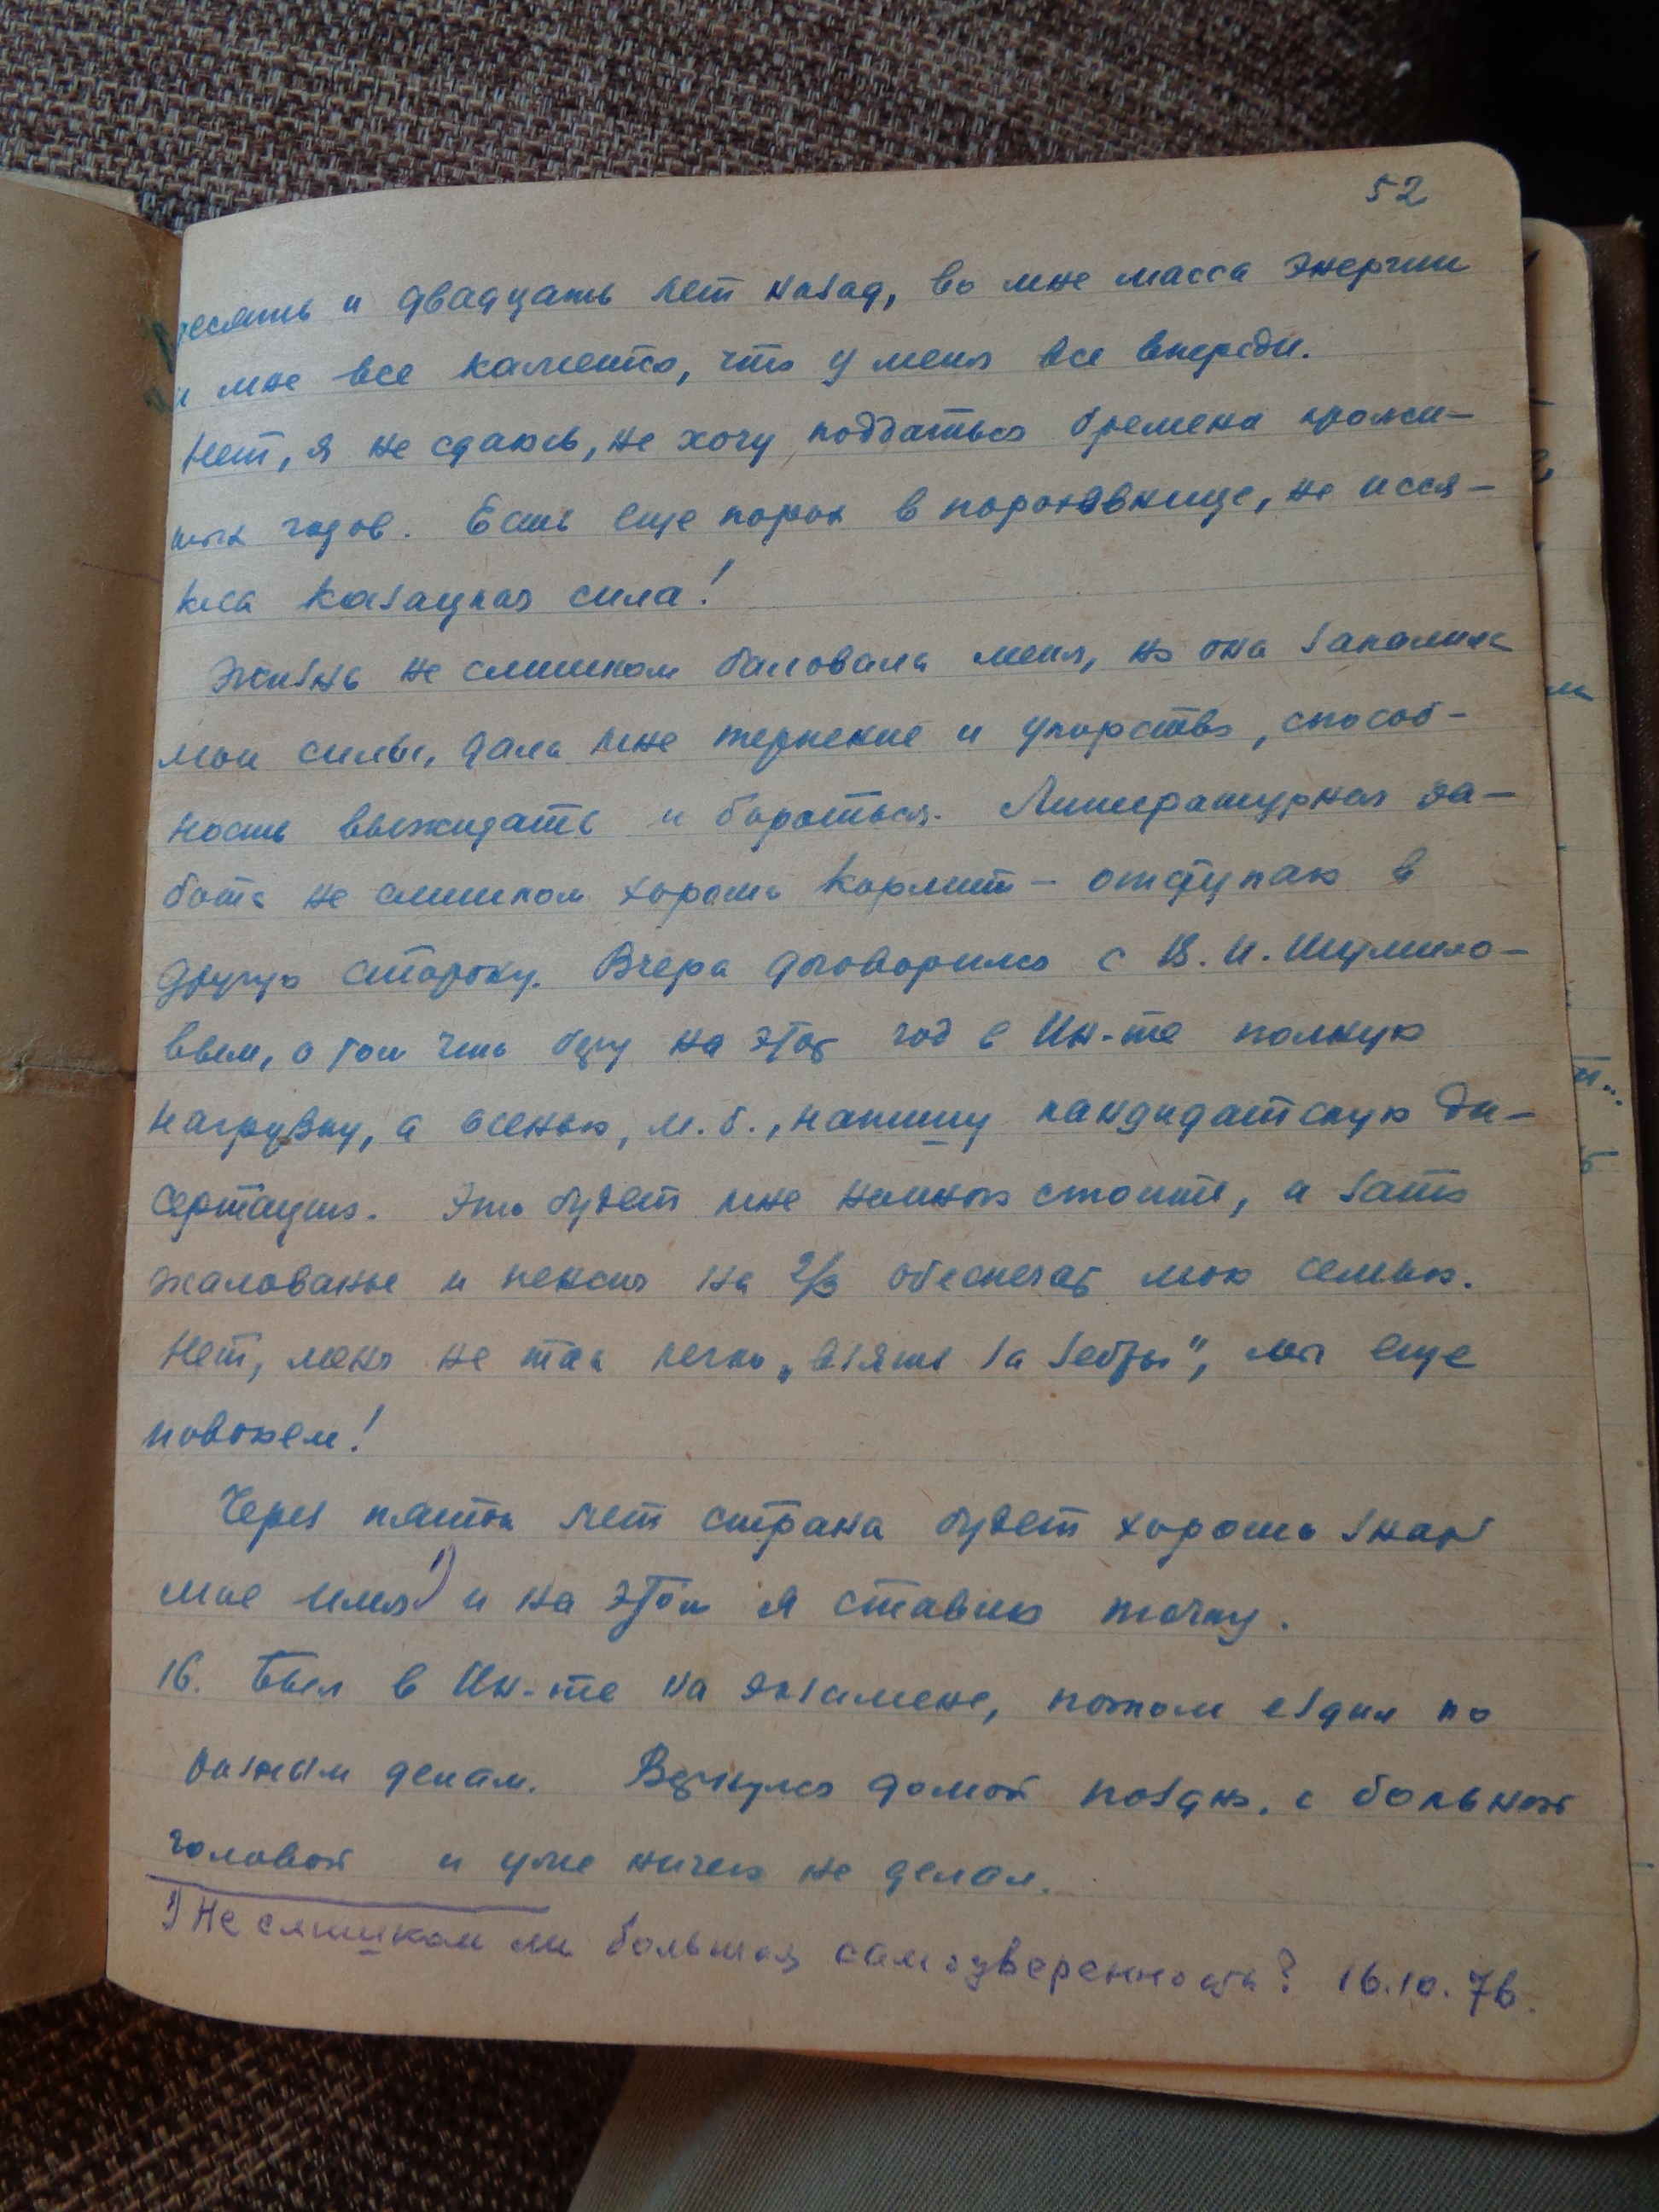 52
десять и двадцать лет назад, во мне масса энергии
и мне все кажется, что у меня все впереди.
Нет, я не сдаюсь, не хочу поддаться бремени прожи-
тых годов. Есть еще порох в пороховнице, не исся-
кла казацкая сила!
Жизнь не слишком баловала меня, но она закалила
мои силы, дала мне терпение и упорство, способ-
ность выжидать и бороться. Литературная ра-
бота не слишком хорошо кормит – отступаю в
другую сторону. Вчера договорился с В. И. Шумило-
вым, о том что беру на этот год в Ин-те полную
нагрузку, а осенью, м. б., напишу кандидатскую ди-
сертацию. Это будет мне стоить, а зато
жалованье и пенсия на 2/3 обеспечат мою семью.
Нет, меня не так легко „взять за зебры", мы еще
повоюем!
Через пяток лет страна будет хорошо знать
мое имя¹⁾ и на этом я ставлю точку.
16. Был в Ин-те на экзамене, потом ездил по
разным делам. Вернулся домой поздно, с больной
головой и уже ничего не делал.
¹⁾ Не слишком ли большая самоуверенность? 16.10.76.